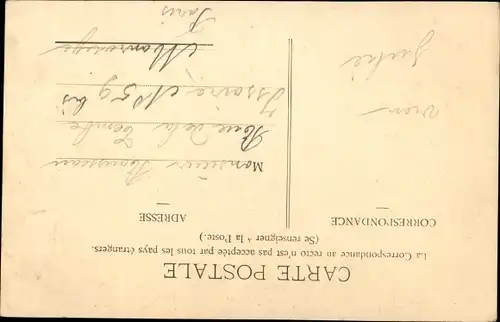 CARTE POSTALE
La Correspondance au recto n'est pas acceptée par tous les pays étrangers.
(Se renseigner à la Poste.)
CORRESPONDANCE
ADRESSE
Monsieur
Rue de la Tombe
Issoire, No 59 bis
Montrouge
Paris